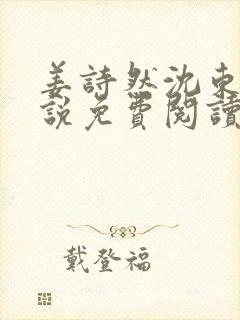 姜詩然沈東
說免費閱讀
戴登福